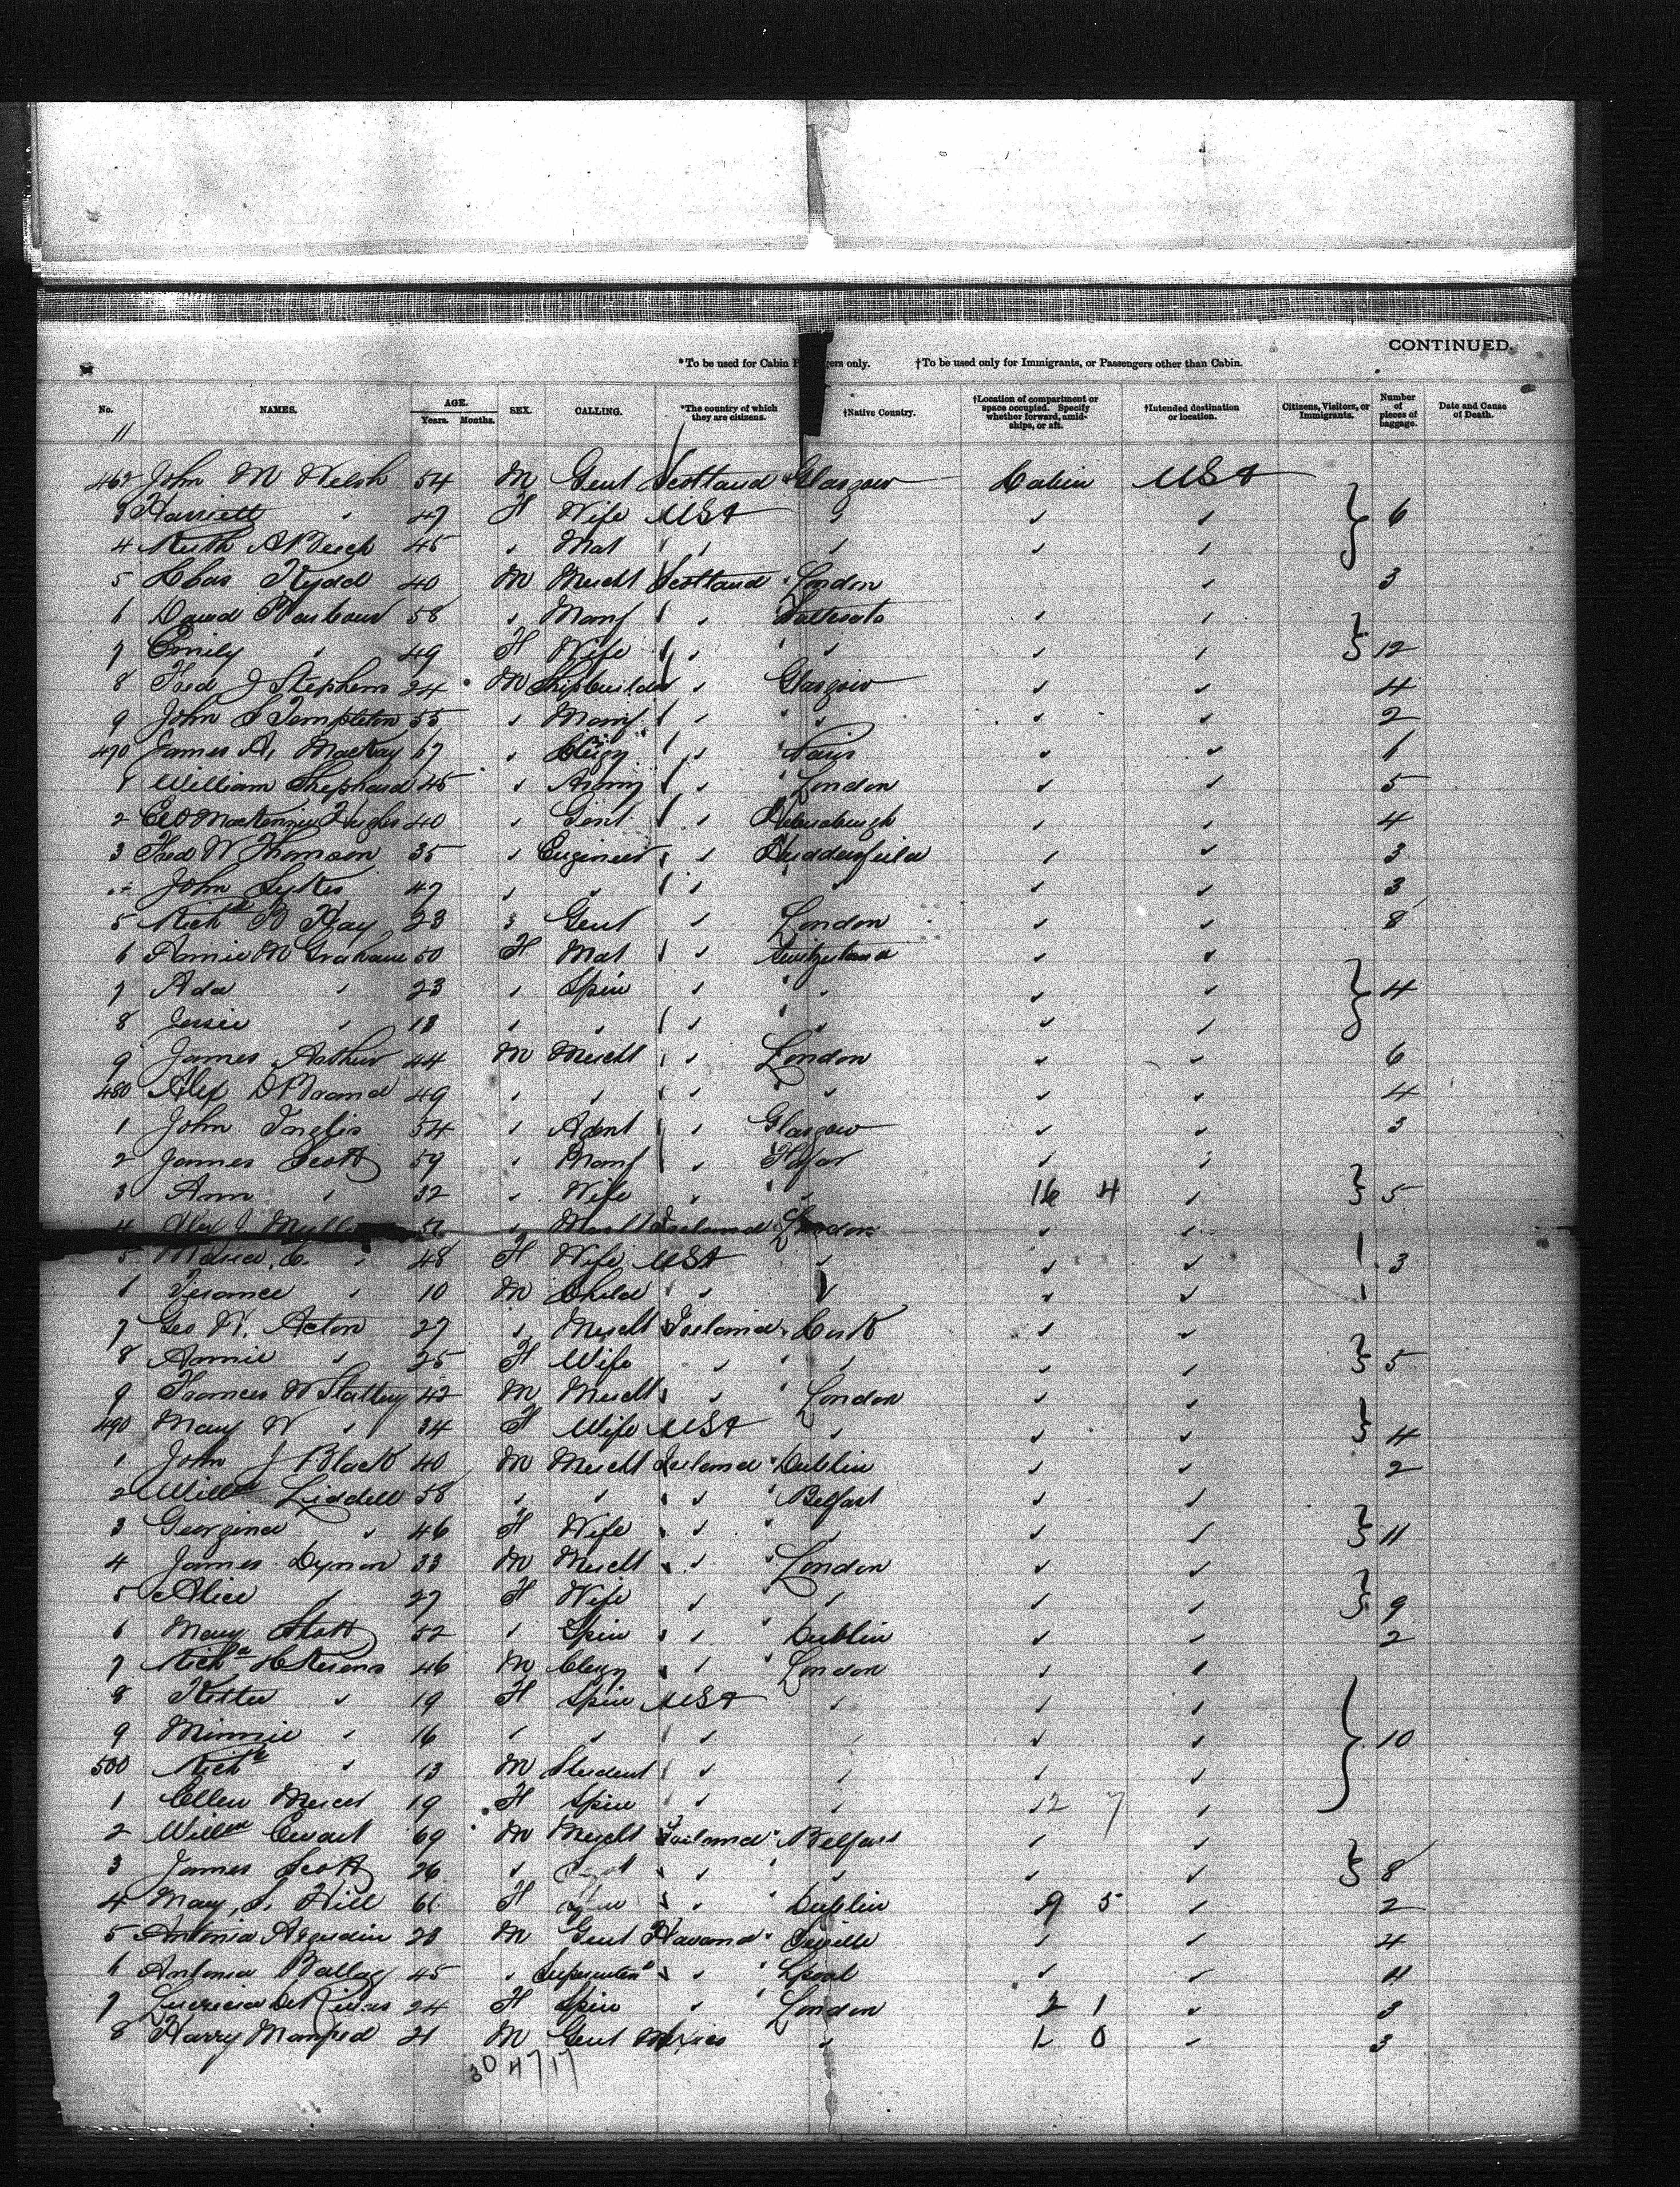 CONTINUED.
*To be used for Cabin P gers only. †To be used only for Immigrants, or Passengers other than Cabin.
No. NAMES. AGE. Years. Months. SEX. CALLING. *The country of which they are citizens. †Native Country. †Location of compartment or space occupied. Specify whether forward, amidships, or aft. †Intended destination or location. Citizens, Visitors, or Immigrants. Number of pieces of baggage. Date and Cause of Death.
11
462 John M Welsh 54 M Gent Scotland Glasgow Cabin USA
3 Harriett " 47 F Wife USA " " " 6
4 Ruth A 45 " Mat " " " "
5 Chas Kydd 40 M Mercht Scotland London " 3
6 David 58 " Manf " " "
7 Emily " 49 F Wife " " " " 12
8 Fred J Stephens 24 M Shipbuilder " Glasgow " " 4
9 John S Templeton 55 " Manf " " " " 2
470 James A. MacKay 67 " Clergy " " " 1
1 William Shephard 45 " Army " London " " 5
2 Mackenzie Hughes 40 " Gent " " " 4
3 Fred W Thomson 35 " Engineer " Huddersfield " " 3
John Sykes 47 " " " " " " 3
5 Richd B Hay 23 " Gent " London " " 8
6 Annie M Graham 50 F Mat " Switzerland " "
7 Ada " 23 " Spin " " " " 4
8 Jessie " 18 " " " " " "
9 James Arthur 44 M Mercht " London " " 6
480 Alex D 49 " " " " " " 4
1 John Inglis 54 " Agent " Glasgow " " 3
2 James Scott 59 " Manf " " "
3 Ann " 32 " Wife " " 16 4 " 5
4 Alex J. " Ireland London " "
5 C. " 48 F Wife USA " " " 3
6 " 10 M Child " " " "
7 Geo W. Acton 27 " Mercht Ireland Cork " "
8 Annie " 25 F Wife " " " " 5
9 Frances W Slattery 42 M Mercht " London " "
490 Mary W " 34 F Wife USA " " " 4
1 John J Black 40 M Mercht Ireland Dublin " " 2
2 Willm Liddell 58 " " " Belfast " "
3 Georgina " 46 F Wife " " " " 11
4 James Dynon 33 M Mercht " London " "
5 Alice " 27 F Wife " " " " 9
6 Mary 52 " Spin " Dublin " " 2
7 Richd 46 M Clergy " London " "
8 " 19 F Spin USA " " "
9 Minnie " 16 " " " " " " 10
500 Richd " 13 M Student " " " "
1 Ellen 19 F Spin " " 12 7 "
2 Willm Ewart 69 M Mercht Ireland Belfast " "
3 James Scott 26 " " " " " 8
4 Mary S. Hill F " Dublin 9 5 " 2
5 Antonia Argudin 28 M Gent Havana Seville " " 4
6 Antonia 45 " " Lpool " " 4
7 24 F Spin " London 2 1 " 3
8 Harry 21 M Gent Mexico " 1 0 " 3
30 47 17